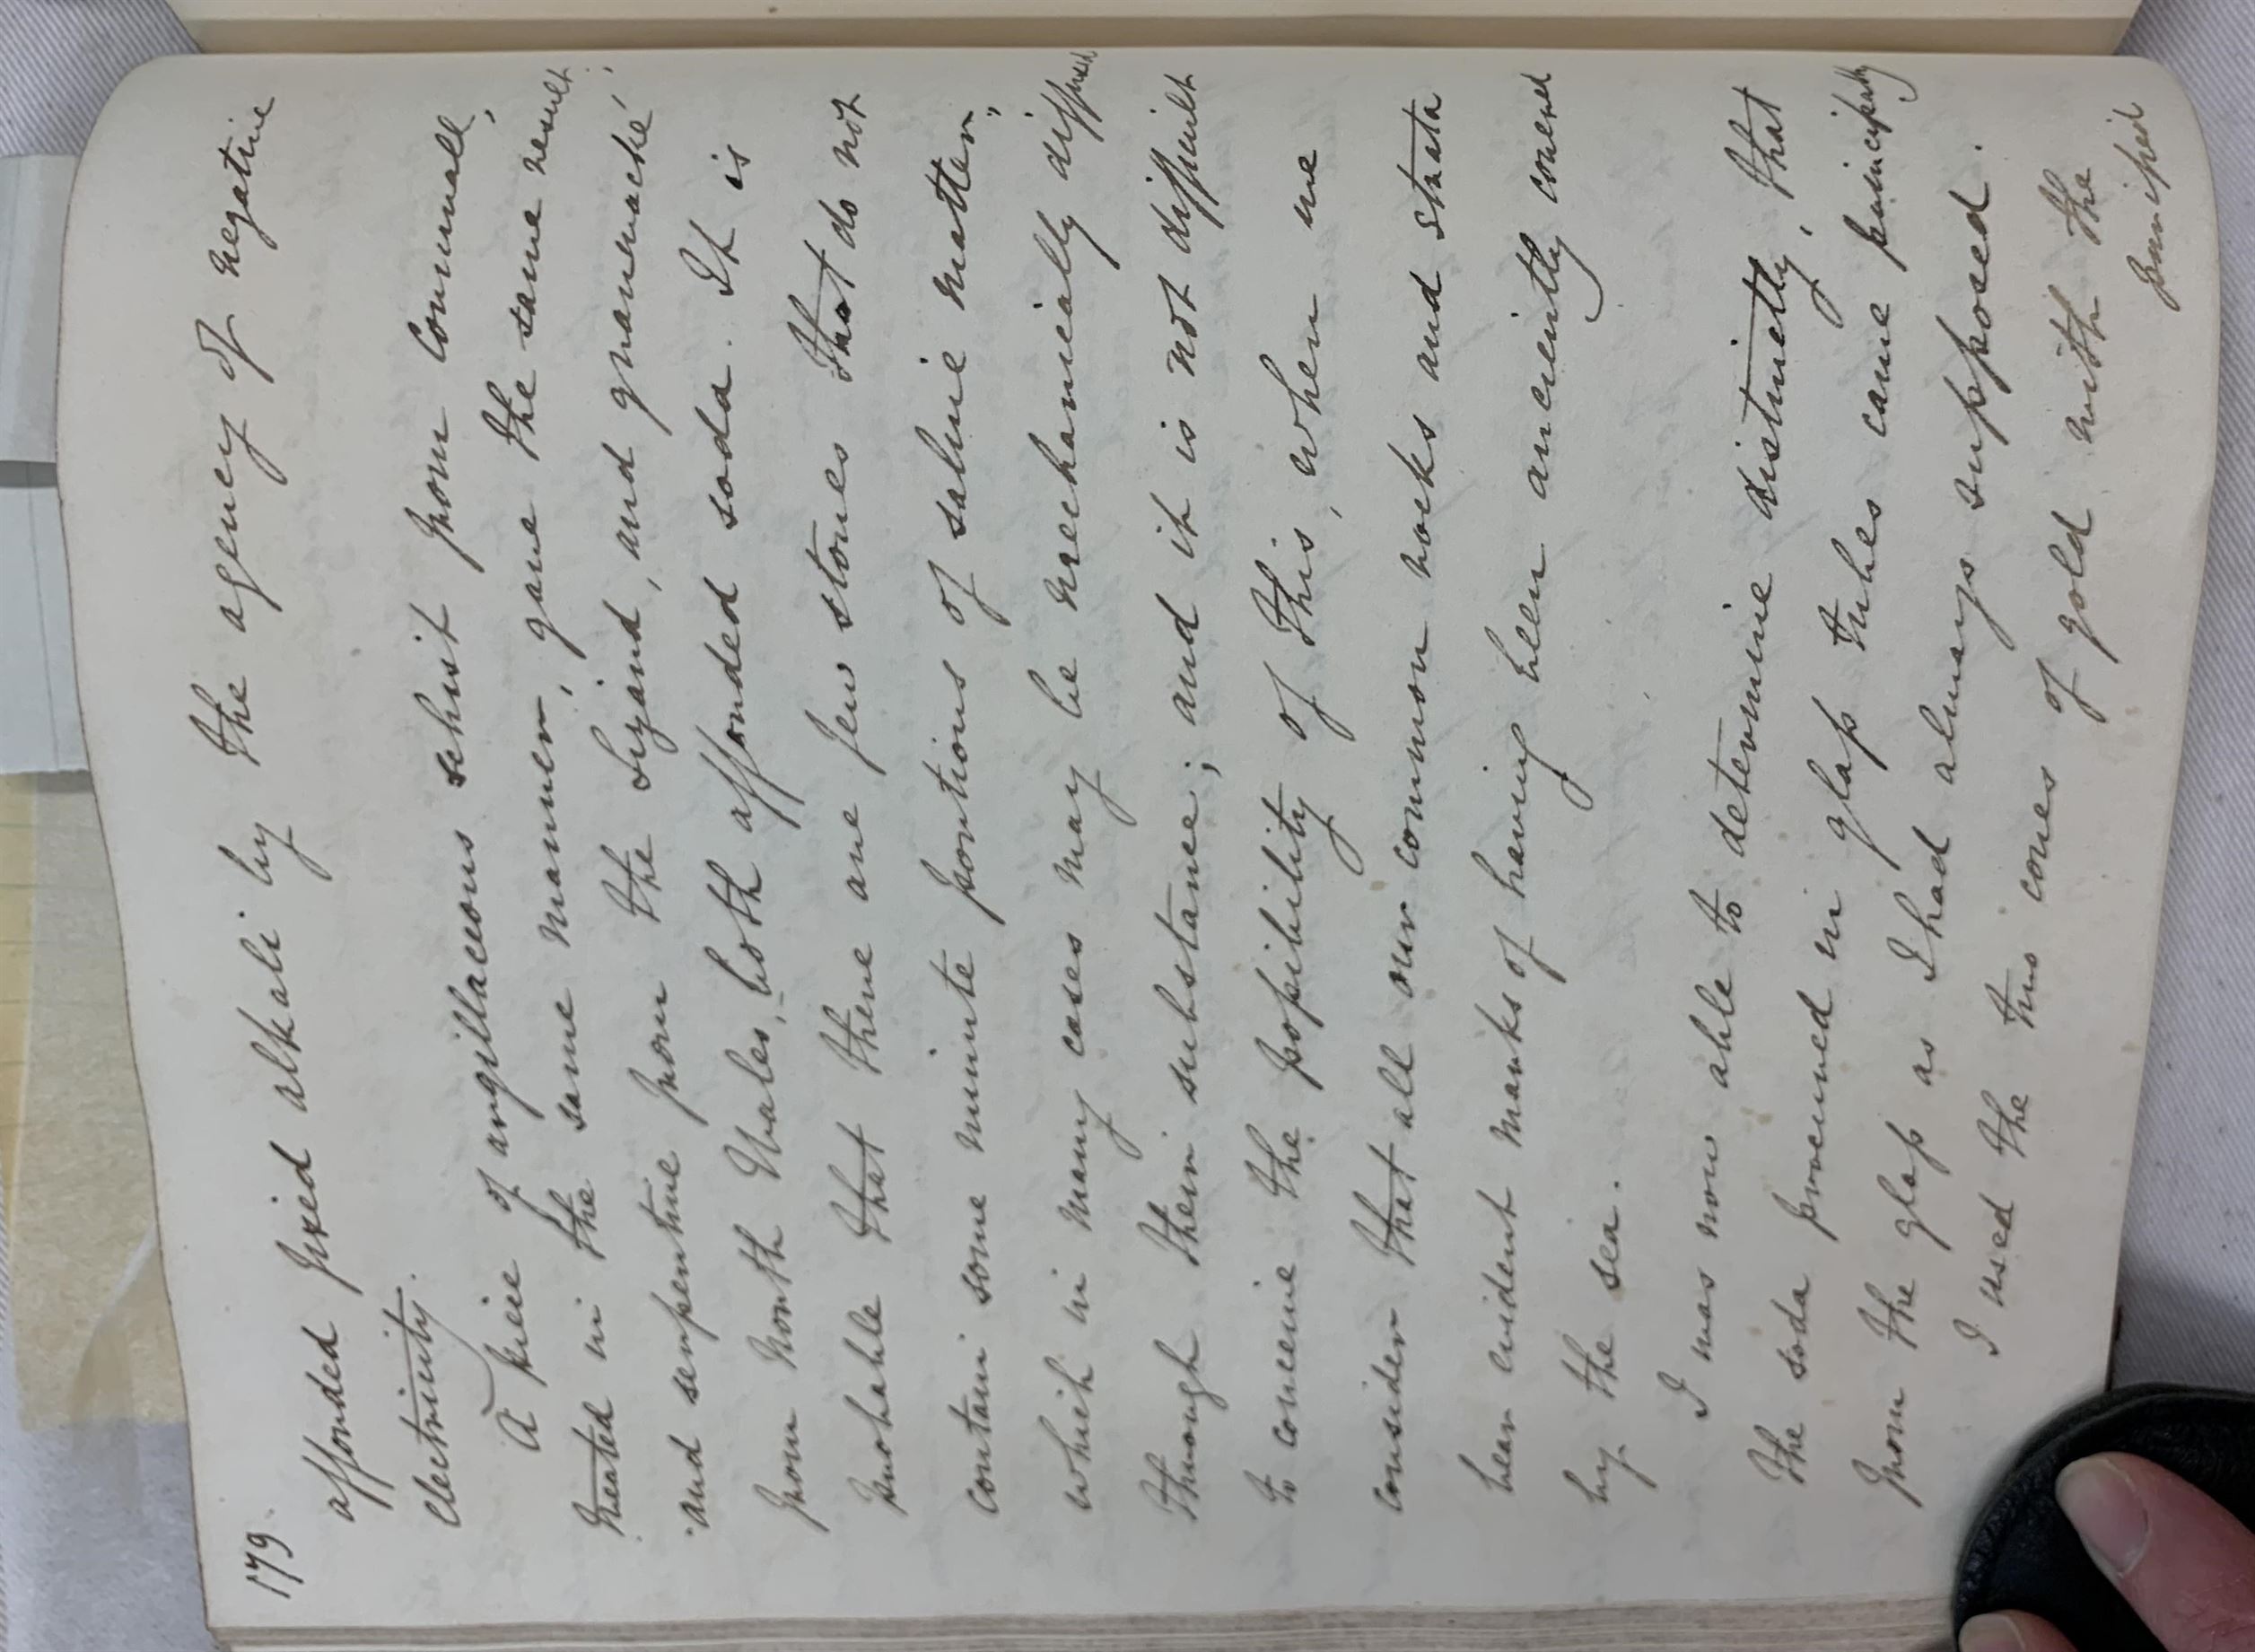 179.
afforded fixed alkali by the agency of negative
electricity.
A piece of argillaceous schist from Cornwall,
treated in the same manner, gave the same result;
and serpentine from the Lizard, and grauwacké
from North Wales, both afforded soda. It is
probable that there are few stones that do not
contain some minute portions of saline matter,
which in many cases may be mechanically diffused
through their substance; and it is not difficult
to conceive the possibility of this, when we
consider that all our common rocks and strata
bear evident marks of having been anciently covered
by the sea.
I was now able to determine distinctly, that
the soda procured in glass tubes came principally
from the glass as I had always supposed.
I used the two cones of gold with the
purified